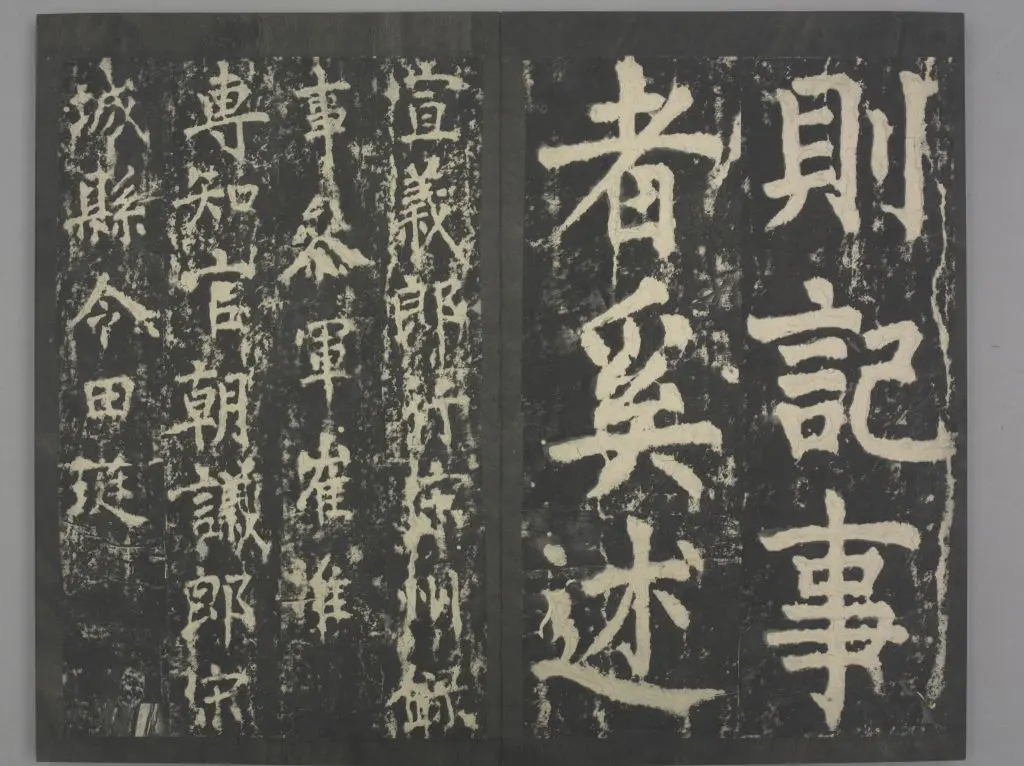 則記事
者奚述
宣義郎行宋州錄
事叅軍崔淮
專知官朝議郎宋
城縣令田珽